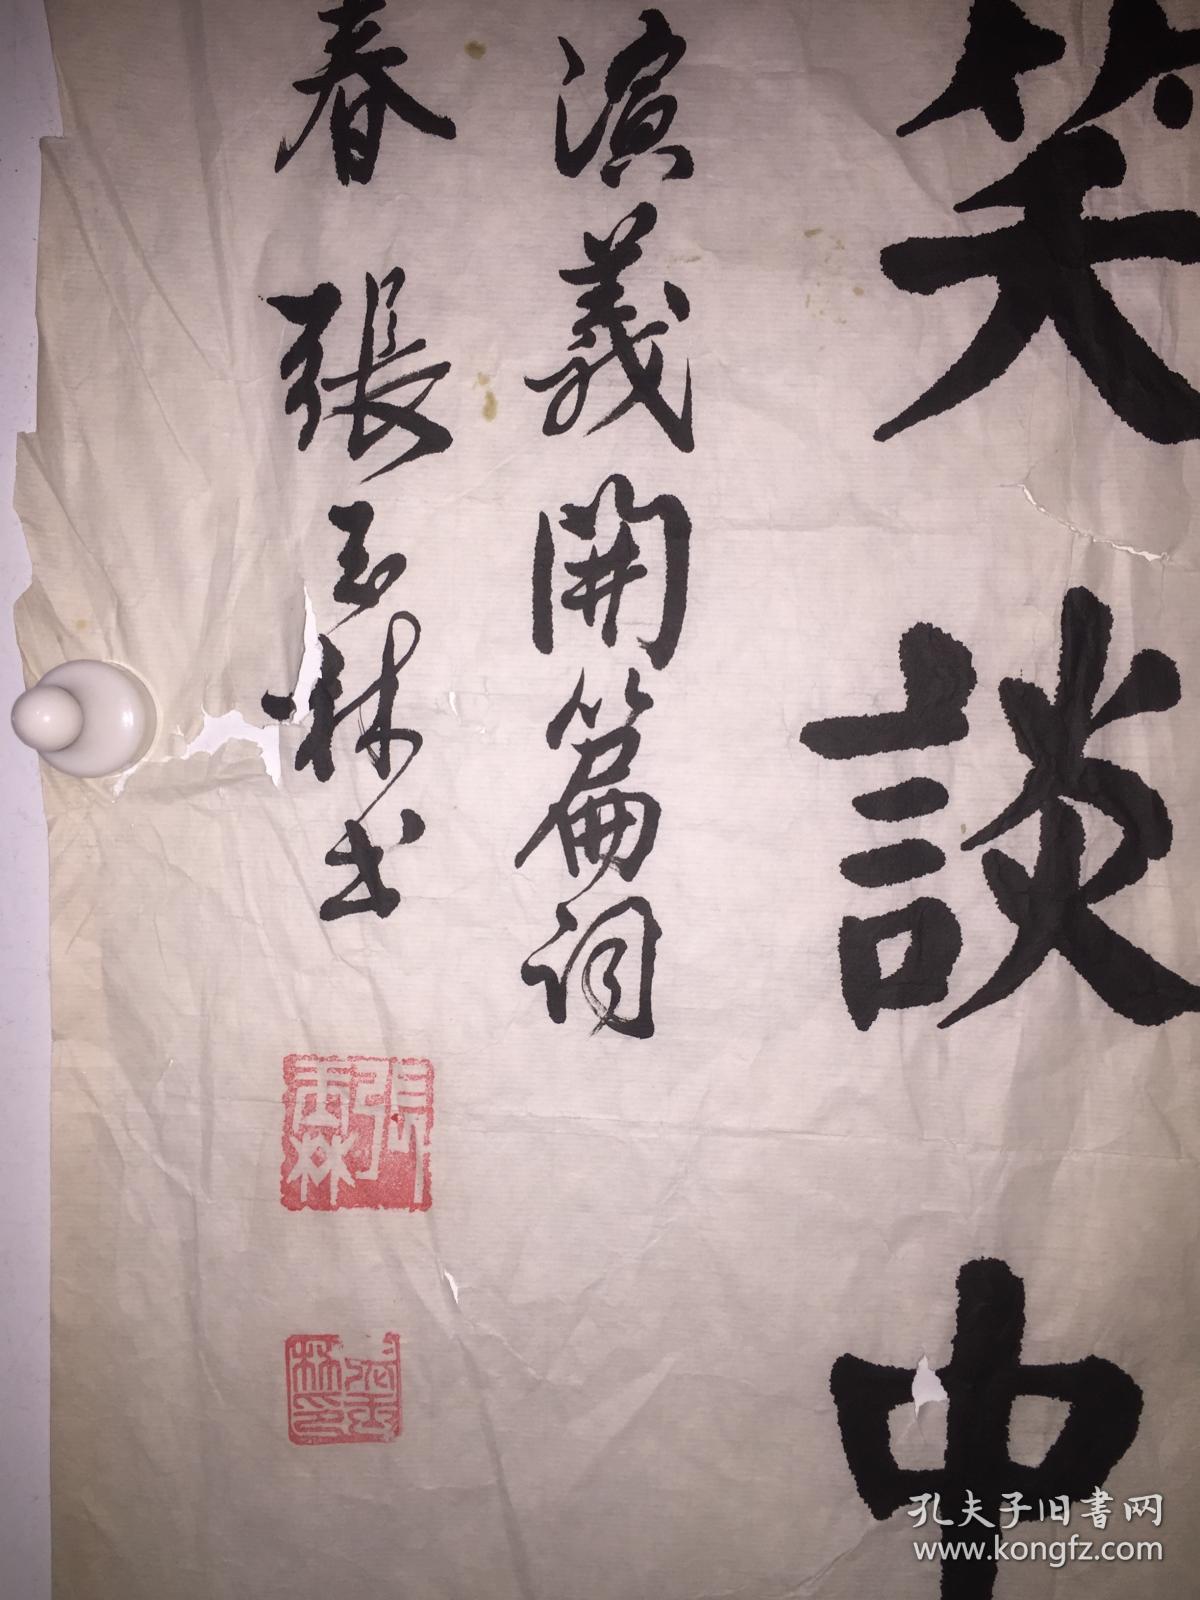 笑談中
演義開篇詞
春 張玉林書
張玉林
張玉林印
孔夫子旧書网
www.kongfz.com